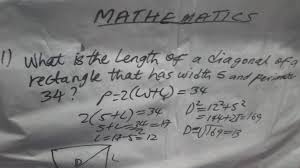 MATHEMATICS
1) What is the Length of a diagonal of a
rectangle that has width 5 and perimeter
34?
P=2(W+L)=34
2(5+L)=34
5+L=34=17
L=17-5=12
D²=12²+5²
=144+25=169
D=√169=13
D
L